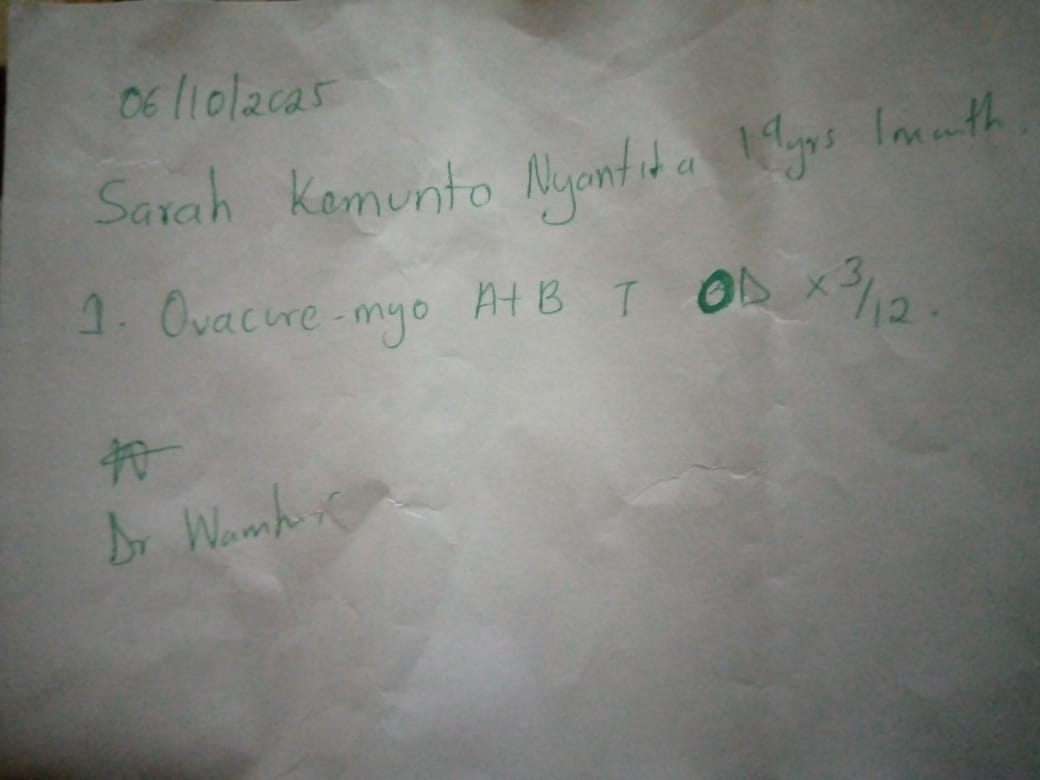 06/10/2025
Sarah Kemunto Nyantita 19yrs 1month.
1. Ovacure-myo A+B T OD x 3/12.
Dr